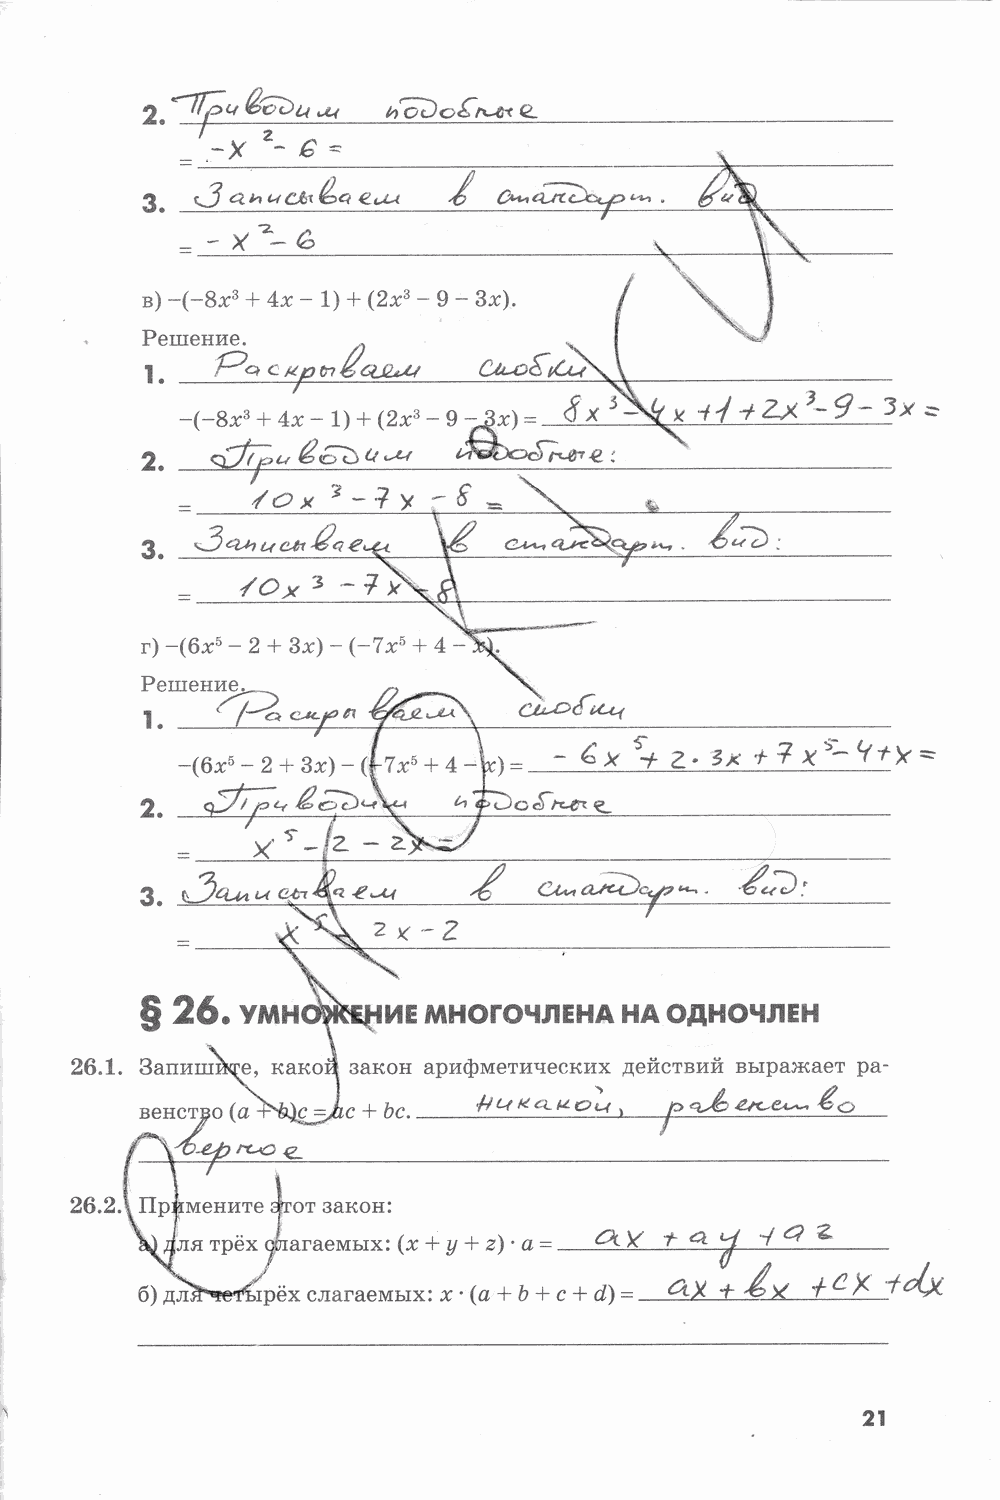 2. Приводим подобные
= -x² - 6 =
3. Записываем в стандарт. вид
= - x² - 6
в) –(–8x³ + 4x – 1) + (2x³ – 9 – 3x).
Решение.
1. Раскрываем скобки
–(–8x³ + 4x – 1) + (2x³ – 9 – 3x) = 8x³ - 4x + 1 + 2x³ - 9 - 3x =
2. Приводим подобные:
= 10x³ - 7x - 8 =
3. Записываем в стандарт. вид:
= 10x³ - 7x - 8
г) –(6x⁵ – 2 + 3x) – (–7x⁵ + 4 – x).
Решение.
1. Раскрываем скобки
–(6x⁵ – 2 + 3x) – (–7x⁵ + 4 – x) = - 6x⁵ + 2 · 3x + 7x⁵ - 4 + x =
2. Приводим подобные
= x⁵ - 2 - 2x =
3. Записываем в стандарт. вид:
= x⁵ - 2x - 2
§ 26. УМНОЖЕНИЕ МНОГОЧЛЕНА НА ОДНОЧЛЕН
26.1. Запишите, какой закон арифметических действий выражает ра-
венство (a + b)c = ac + bc. никакой, равенство
верное
26.2. Примените этот закон:
а) для трёх слагаемых: (x + y + z) · a = ax + ay + az
б) для четырёх слагаемых: x · (a + b + c + d) = ax + bx + cx + dx
21